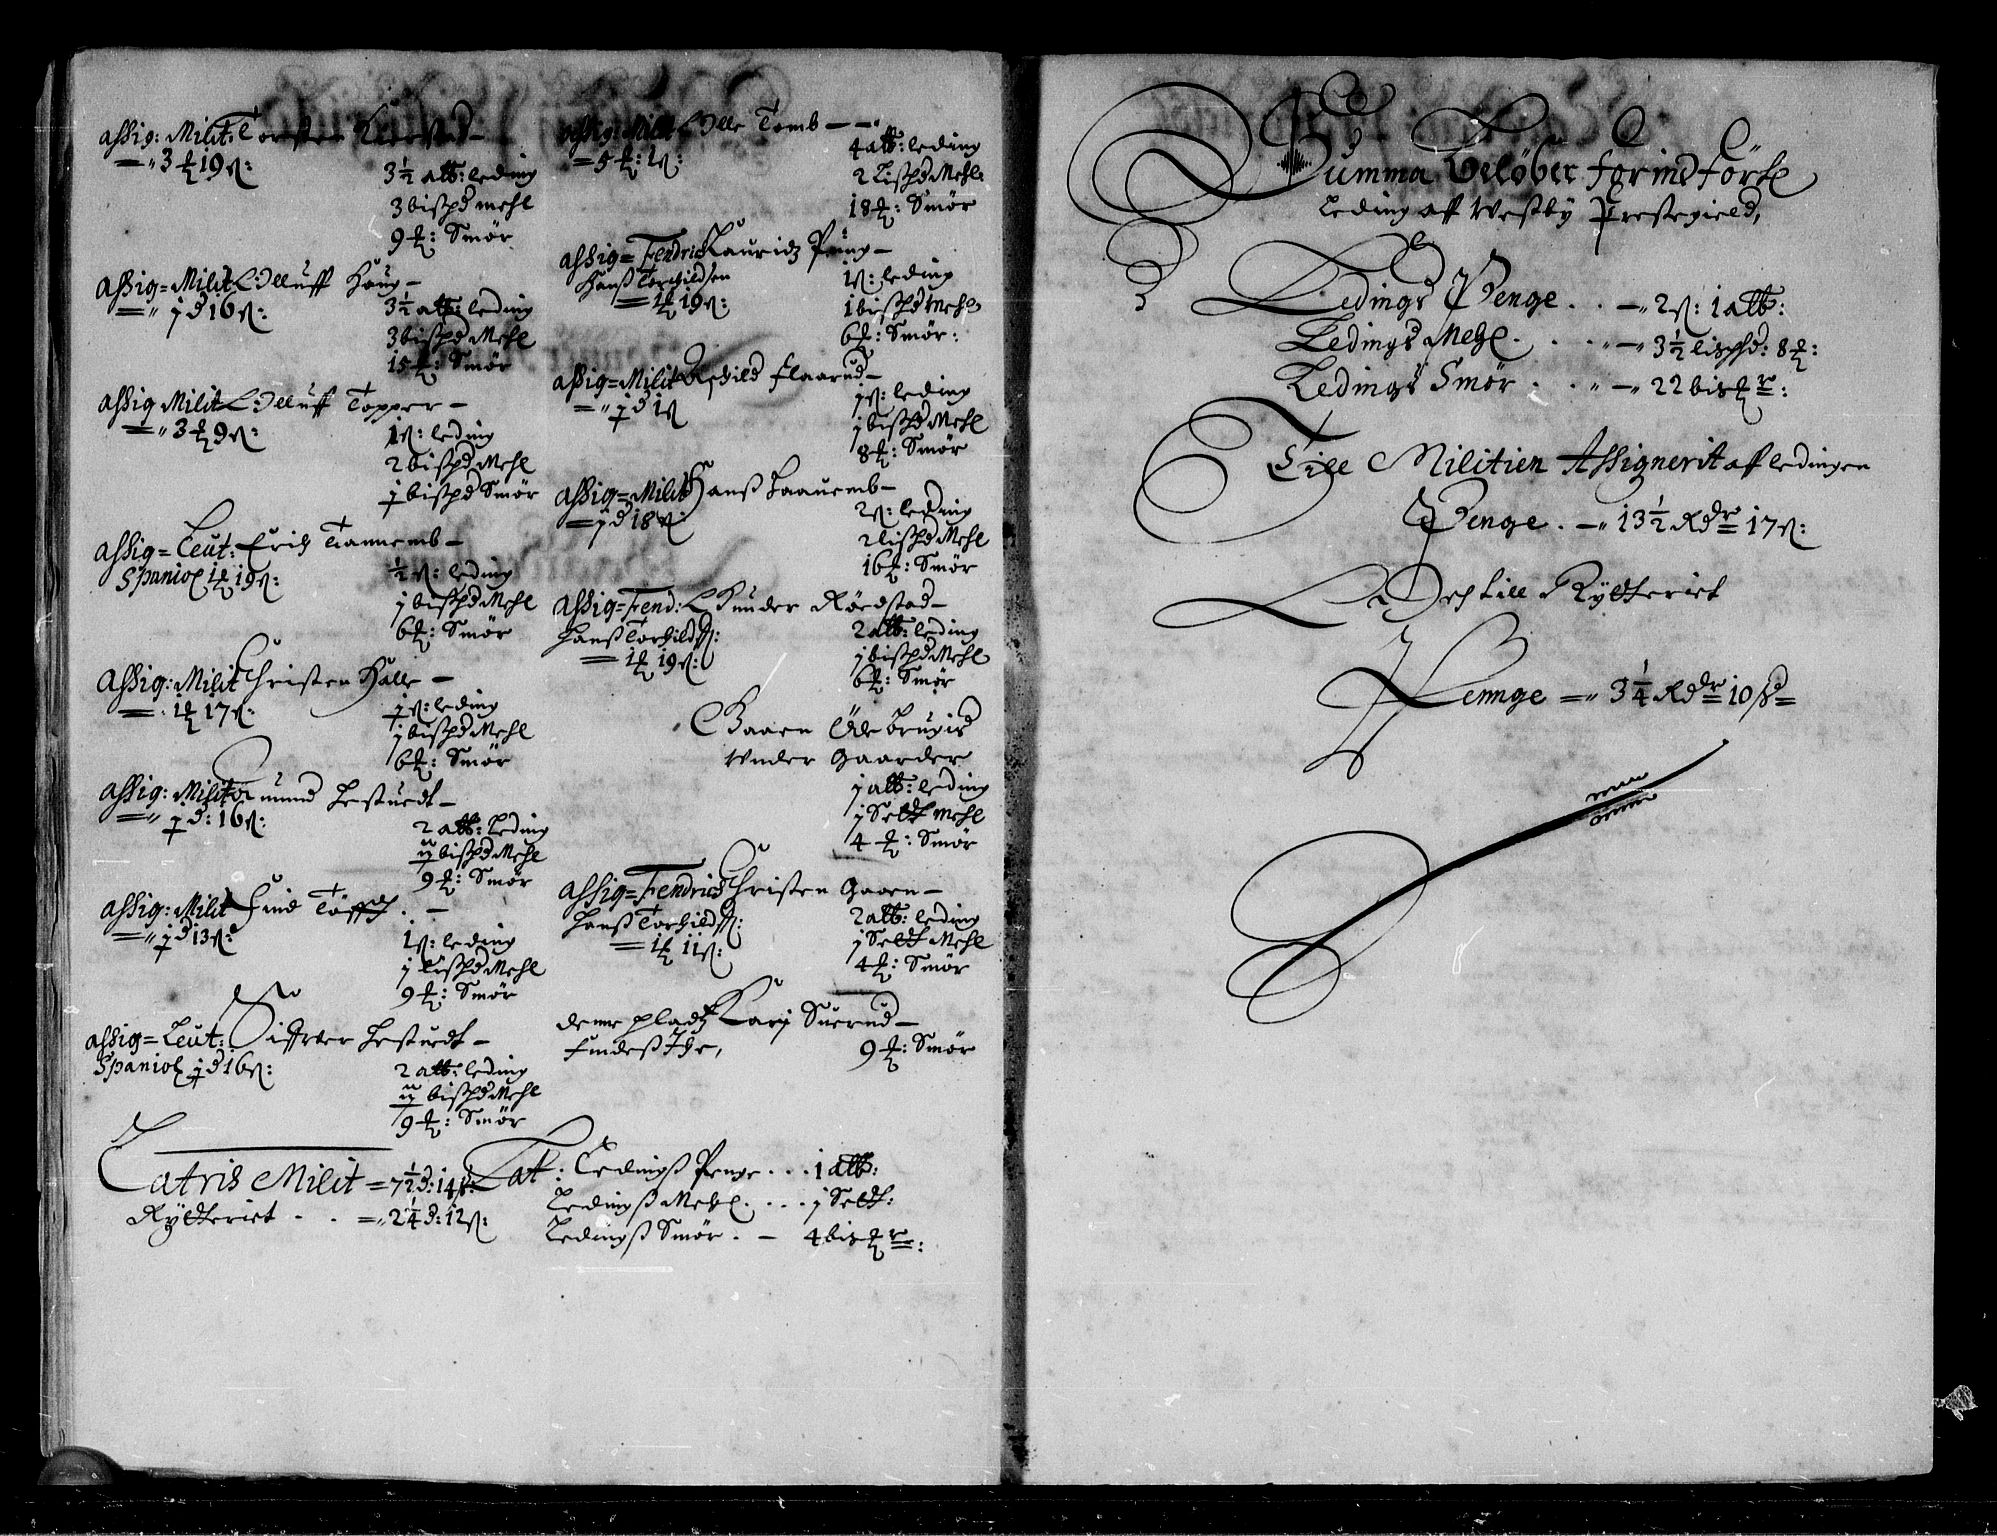 assig: Milit: Torsten Kierstad —
3 ₰ 19 ß:
3½ alb: leding
3 bißpd mehl
9 ₰: Smør
assig= Milit Olluff Haug —
j d 16 ß:
3½ alb: leding
3 bißpd Mehl
15 ₰: Smør
assig Milit Olluff Topper —
3 ₰ 9 ß:
1 ß: leding
2 bißpd Mehl
j bißpd Smør
assig= Leut: Erich Tannemb —
Spaniol 1 ₰ 19 ß:
½ ß: leding
j bißpd Mehl
6 ₰: Smør
assig: Milit Christen Halle —
1 ₰ 17 ß:
j ß: leding
j bißpd Mehl
6 ₰: Smør
assig: Milit Amund Hestuedt —
j d: 16 ß:
2 alb: leding
ij bißpd Mehl
9 ₰: Smør
assig: Milit Find —
j d 13 ß:
1 ß: leding
j lißpd Mehl
9 ₰: Smør
assig= Leut: Siffver Hestuedt —
Spaniol j d 16 ß:
2 alb: leding
ij bißpd Mehl
9 ₰: Smør
Latris Milit = 7½ d: 14 ß:
Rÿtteriet . . = 2¼ d: 12 ß:
assig: Milit Olle Tomb —
= 5 ₰: 1 ß:
4 alb: leding
2 Lißpd Mehl
18 ₰: Smør
assig= Fendrich Lauridz Pung —
Hanß Torchildsen
= 1 ₰ 19 ß:
1 ß: leding
1 bißpd Mehl
6 ₰: Smør:
assig= Milit Eschild Flaarud —
j d 1 ß
j ß: leding
j bißpd Mehl
8 ₰: Smør
assig= Milit Hanß —
= j d 18 ß:
2 ß: leding
2 lißpd Mehl
16 ₰: Smør
assig= Fend: Gunder Rørdstad —
Hanß Torchildß:
= 1 ₰ 19 ß:
2 alb: leding
j bißpd Mehl
6 ₰: Smør
Gaaen Øde brugis
vnder Gaarder
j alb: leding
j Seltt Mehl
4 ₰: Smør
assig= Fendrich Christen Gaaen —
Hanß Torchildß:
= 1 ₰ 11 ß:
2 alb: leding
j Seltt Mehl
4 ₰: Smør
denne pladtz Karj Suerud —
findeß Jche,
9 ₰: Smør
Lat: Ledingß Penge . . . 1 alb:
Ledingß Mehl . . . . j Seltt:
Ledingß Smør . — 4 bis ₰r:
Summa Beløber forindførte
Leding aff Westbÿ Prestegield,
Ledings Penge . . — 2 ß: 1 alb:
Ledings Mehl . . . — 3½ lispd: 8 ₰:
Ledings Smør . . — 22 bis ₰r:
Till Militien Assignerit aff ledingen
Penge . — 13½ Rdr 17 ß:
Ledes till Rÿtteriet
Pennge = 3¼ Rdr 10 ß